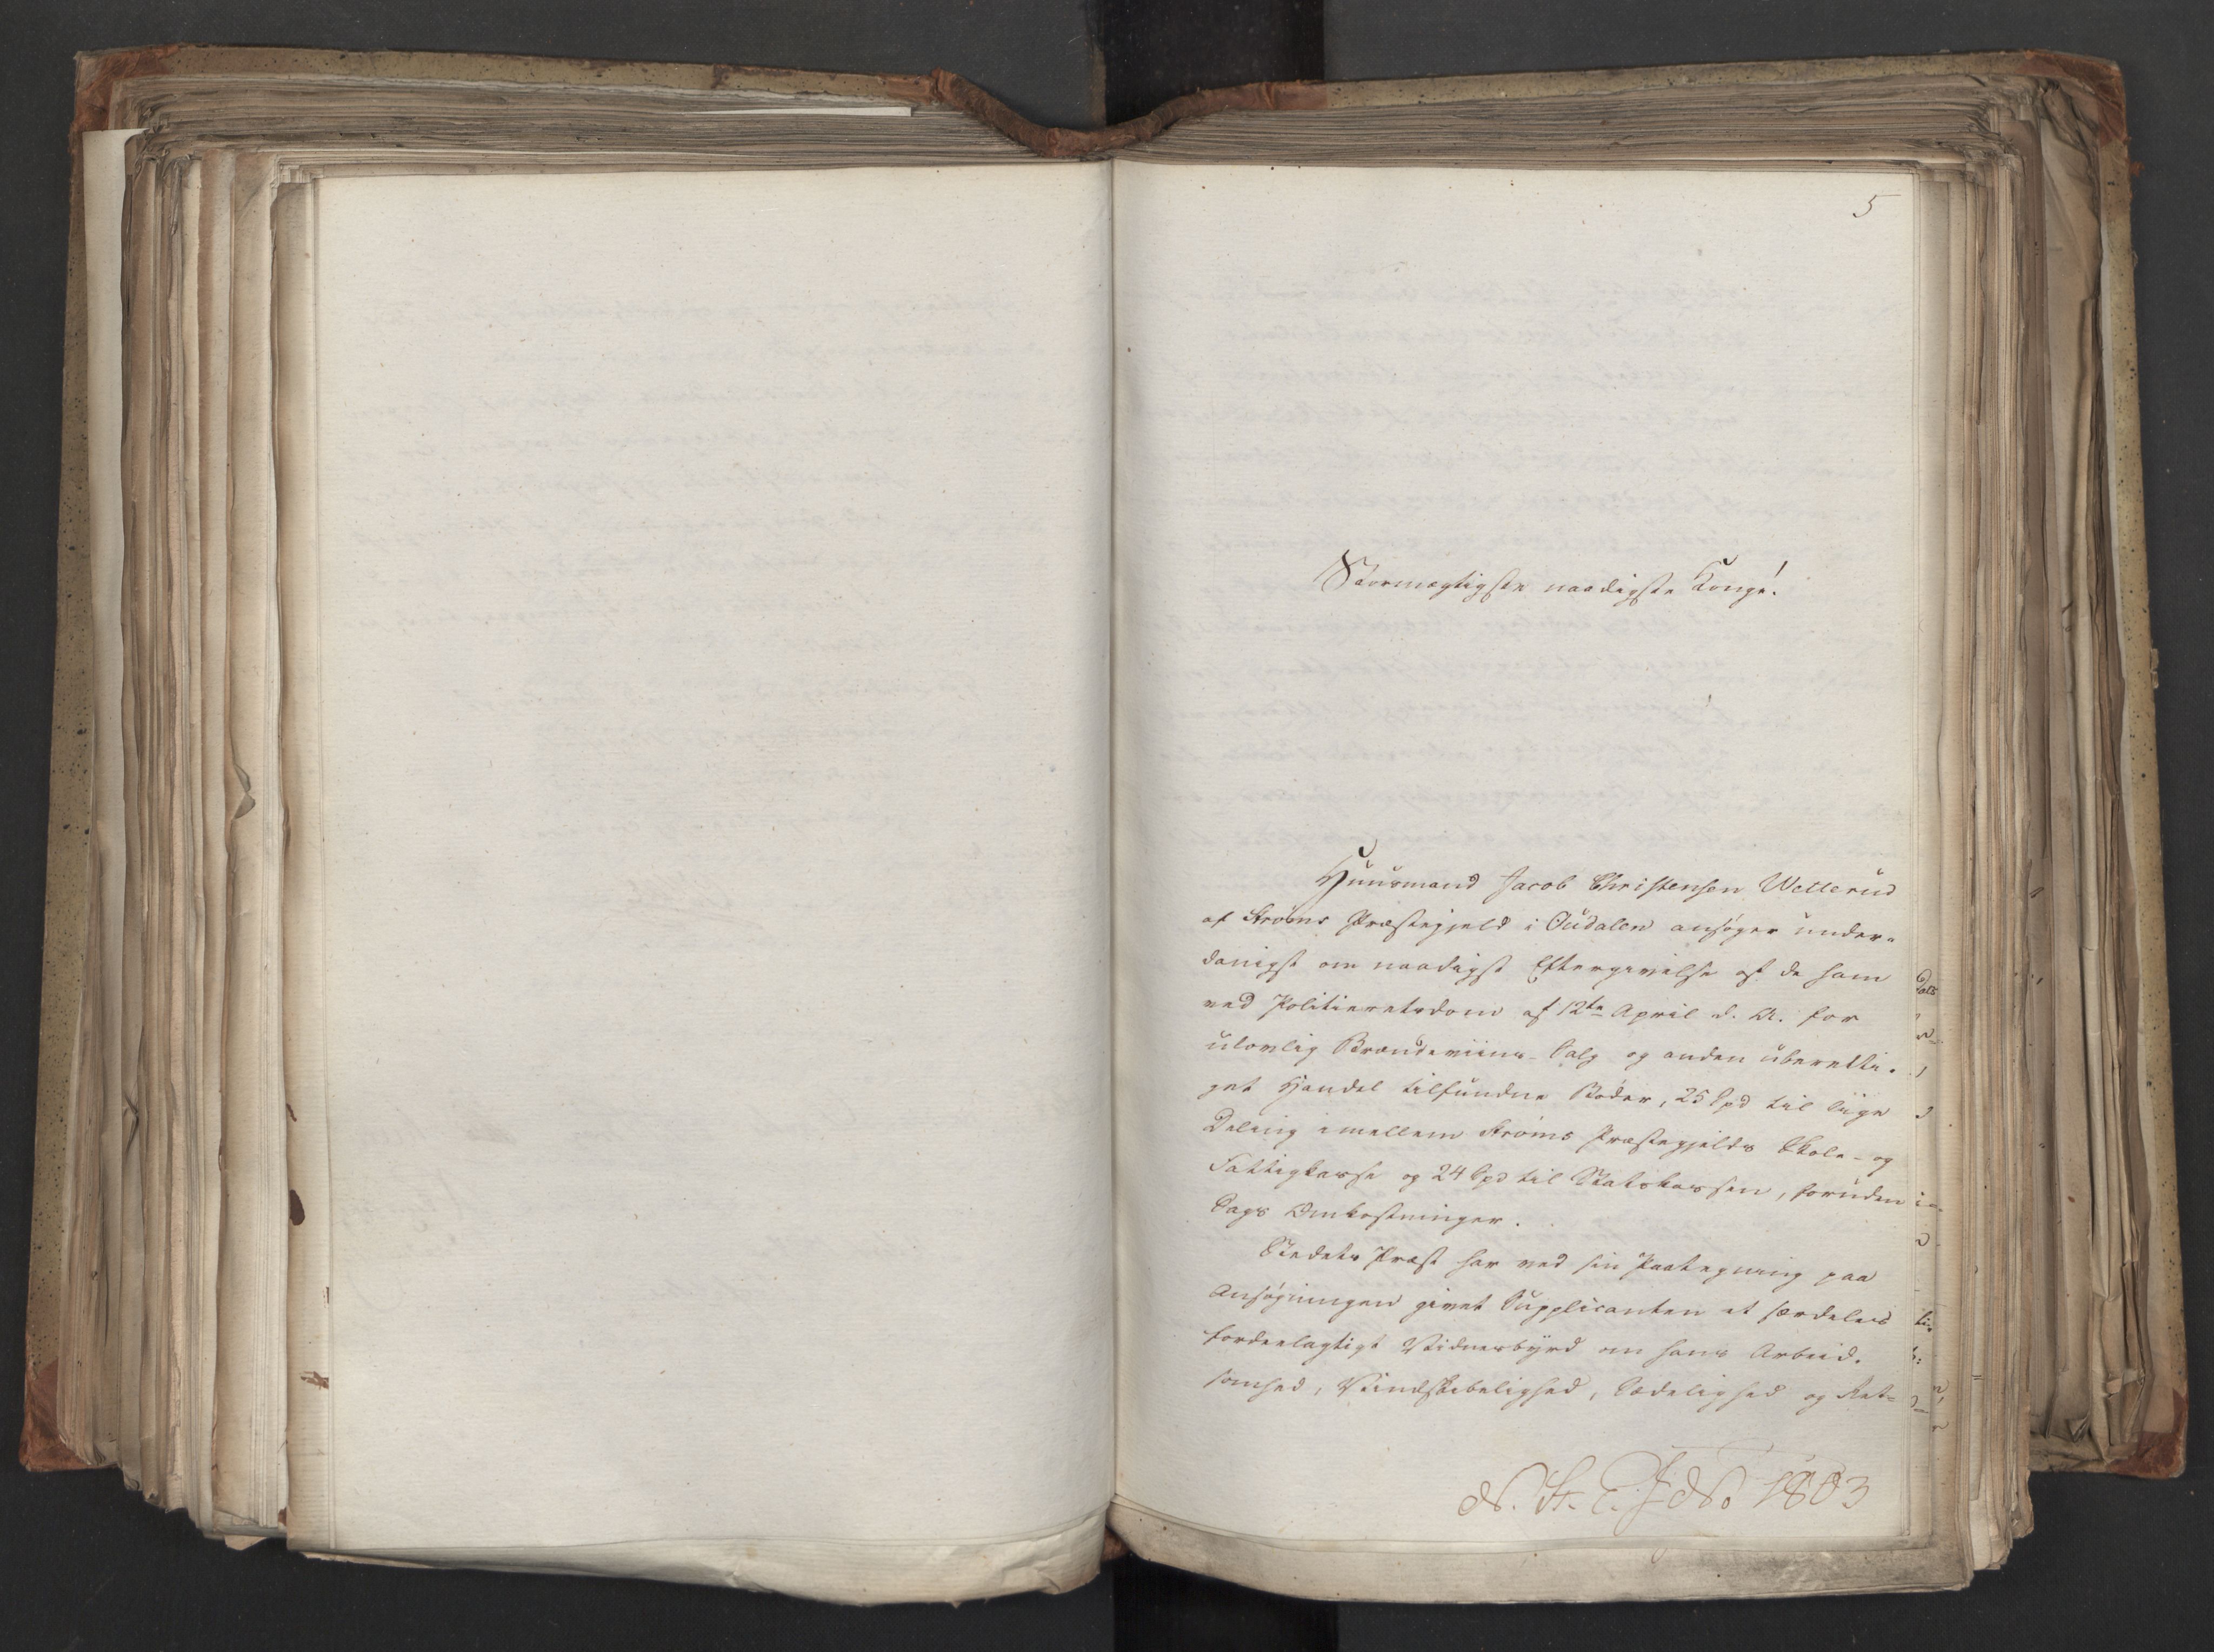 5
Stormægtigste naadigste Konge!
Huusmand Jacob Christensen Wetterud
af Strøms Præstegjeld i Oudalen ansøger under-
danigst om naadigst Eftergivelse af de ham
ved Politieretsdom af 12te April d. A. for
ulovlig Brændeviins-Salg og anden uberetti-
get Handel tilfundne Bøder, 25 Spd til liige
Deling imellem Strøms Præstegjelds Skole- og
Fattigkasse og 24 Spd til Statskassen, foruden
Sags Omkostninger.
Stedets Præst har ved sin Paategning paa
Ansøgningen givet Supplicanten et særdeles
fordeelagtigt Vidnesbyrd om hans Arbeid-
somhed, Vindskibelighed, Sædelighed og Ret-
N. St. E. J No 1803